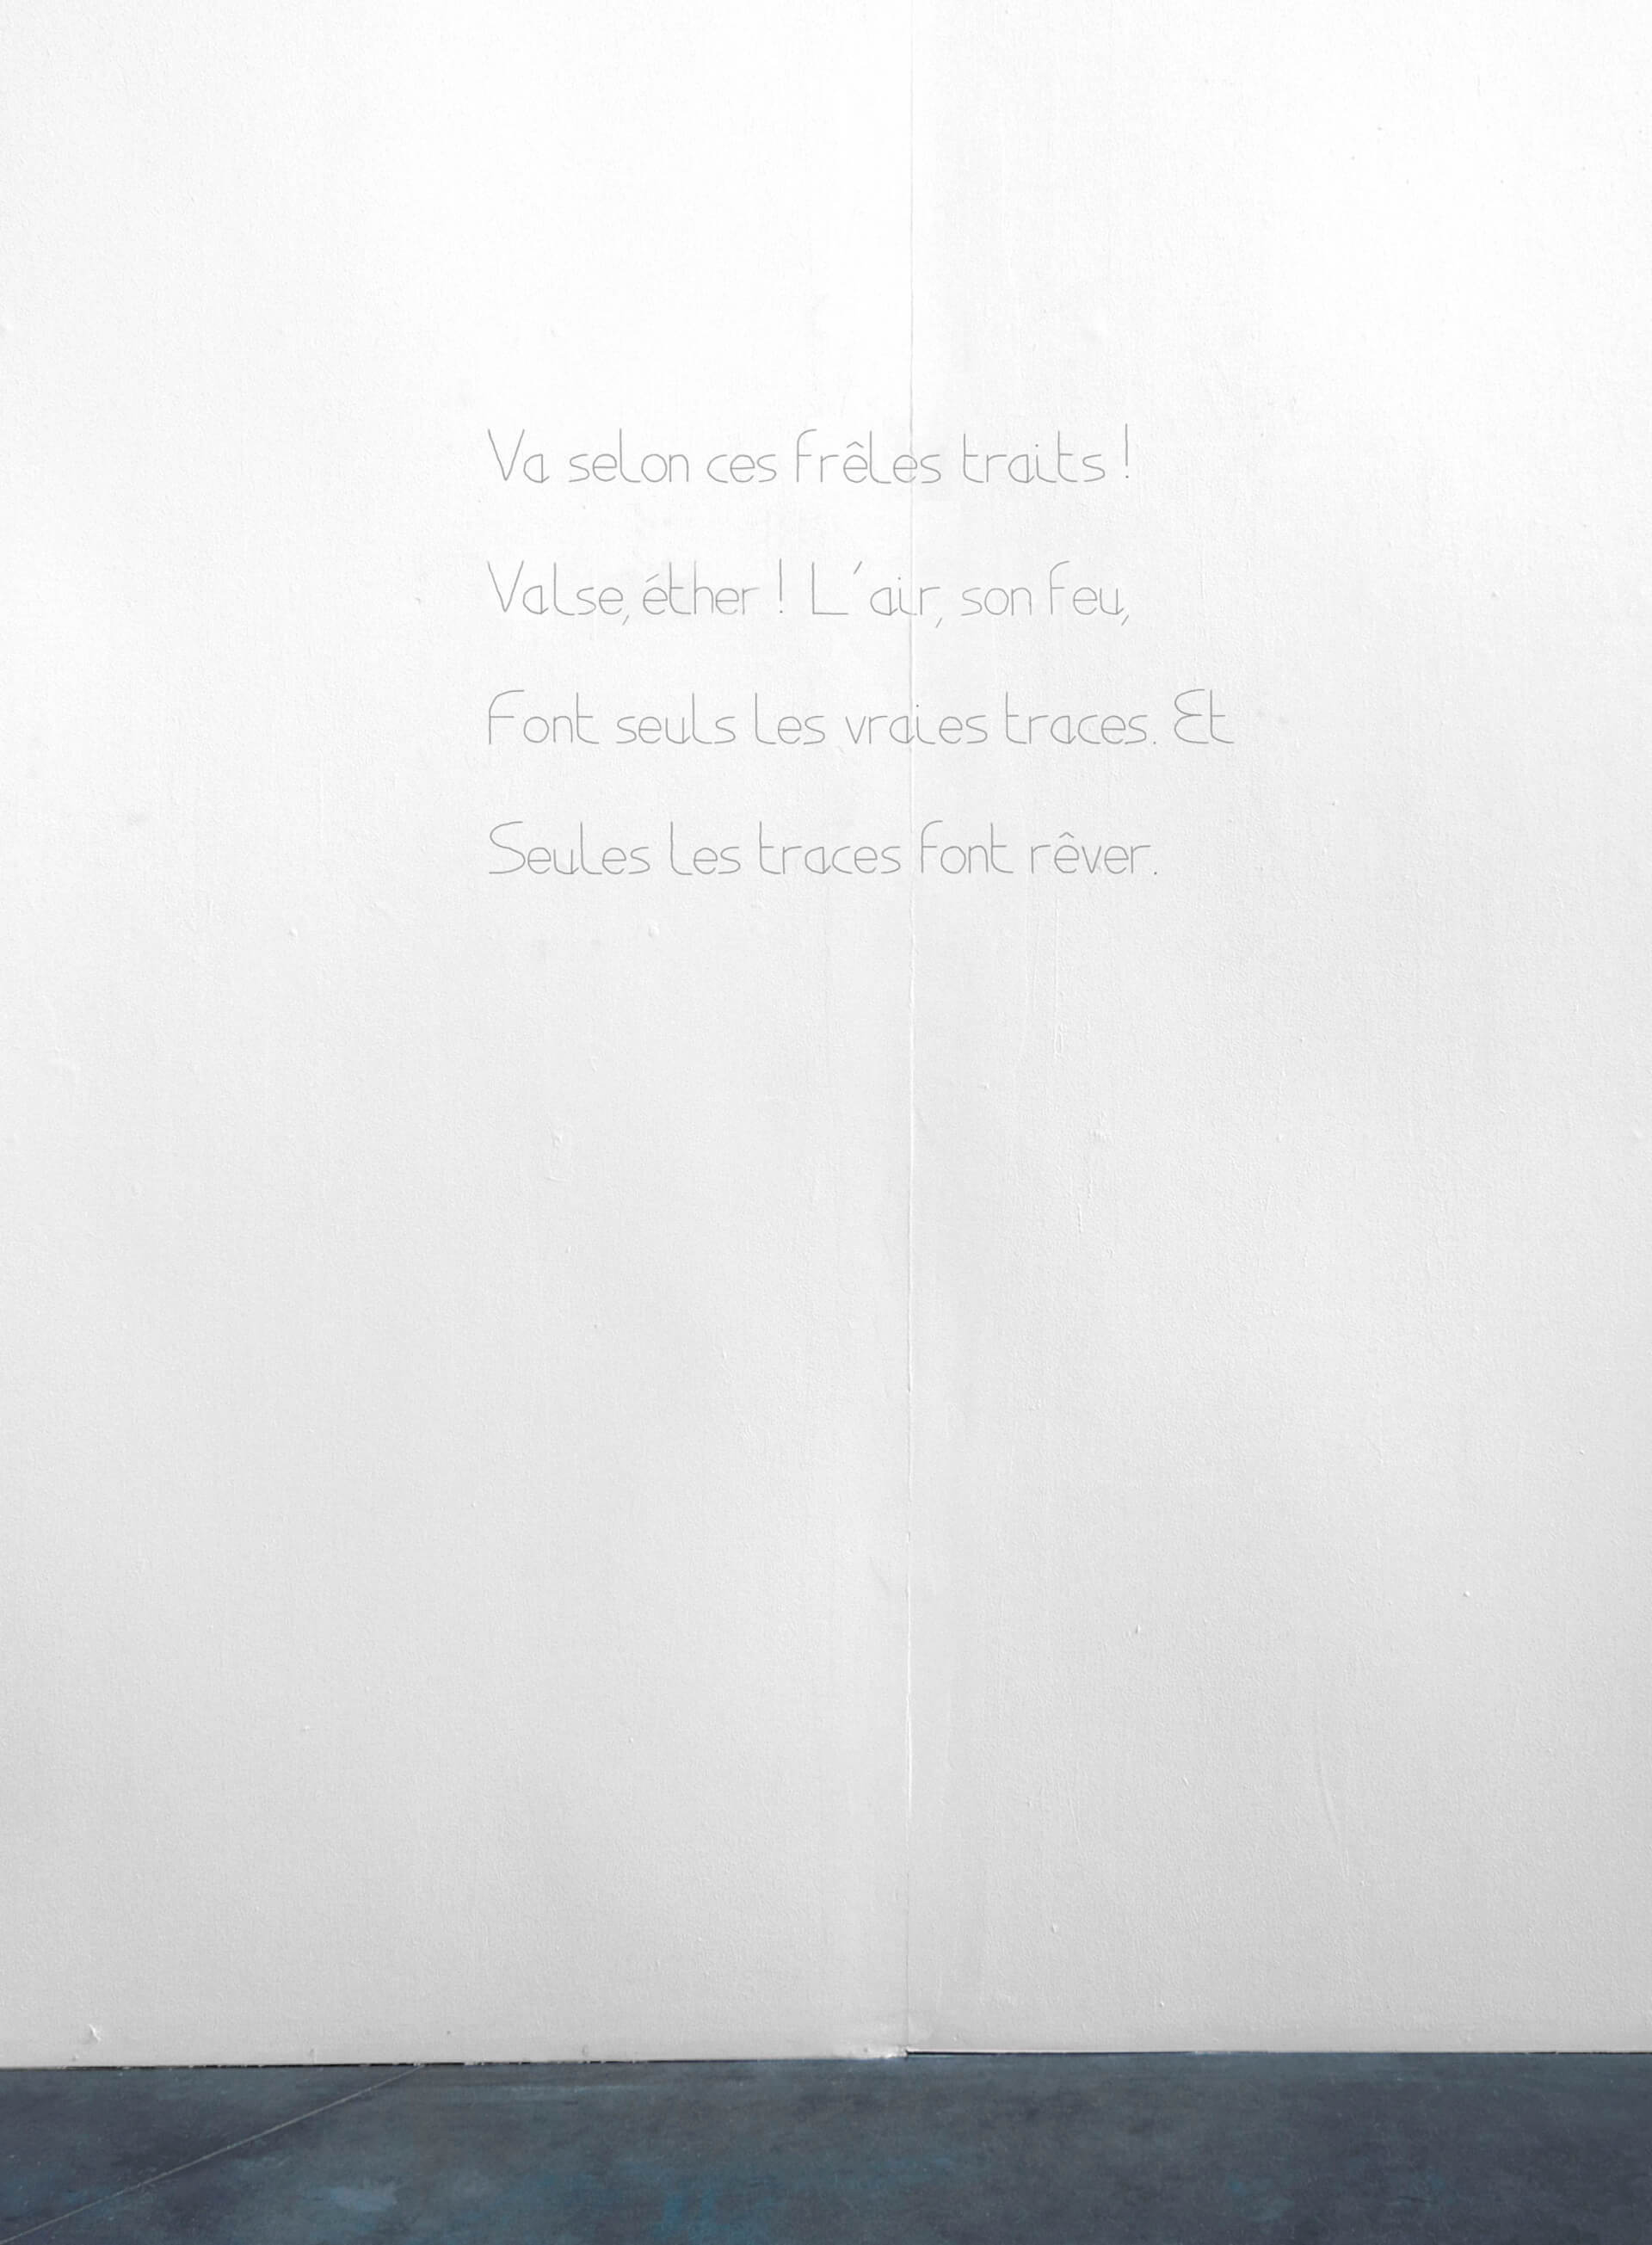 Va selon ces frêles traits !
Valse, éther ! L'air, son feu,
Font seuls les vraies traces. Et
Seules les traces font rêver.